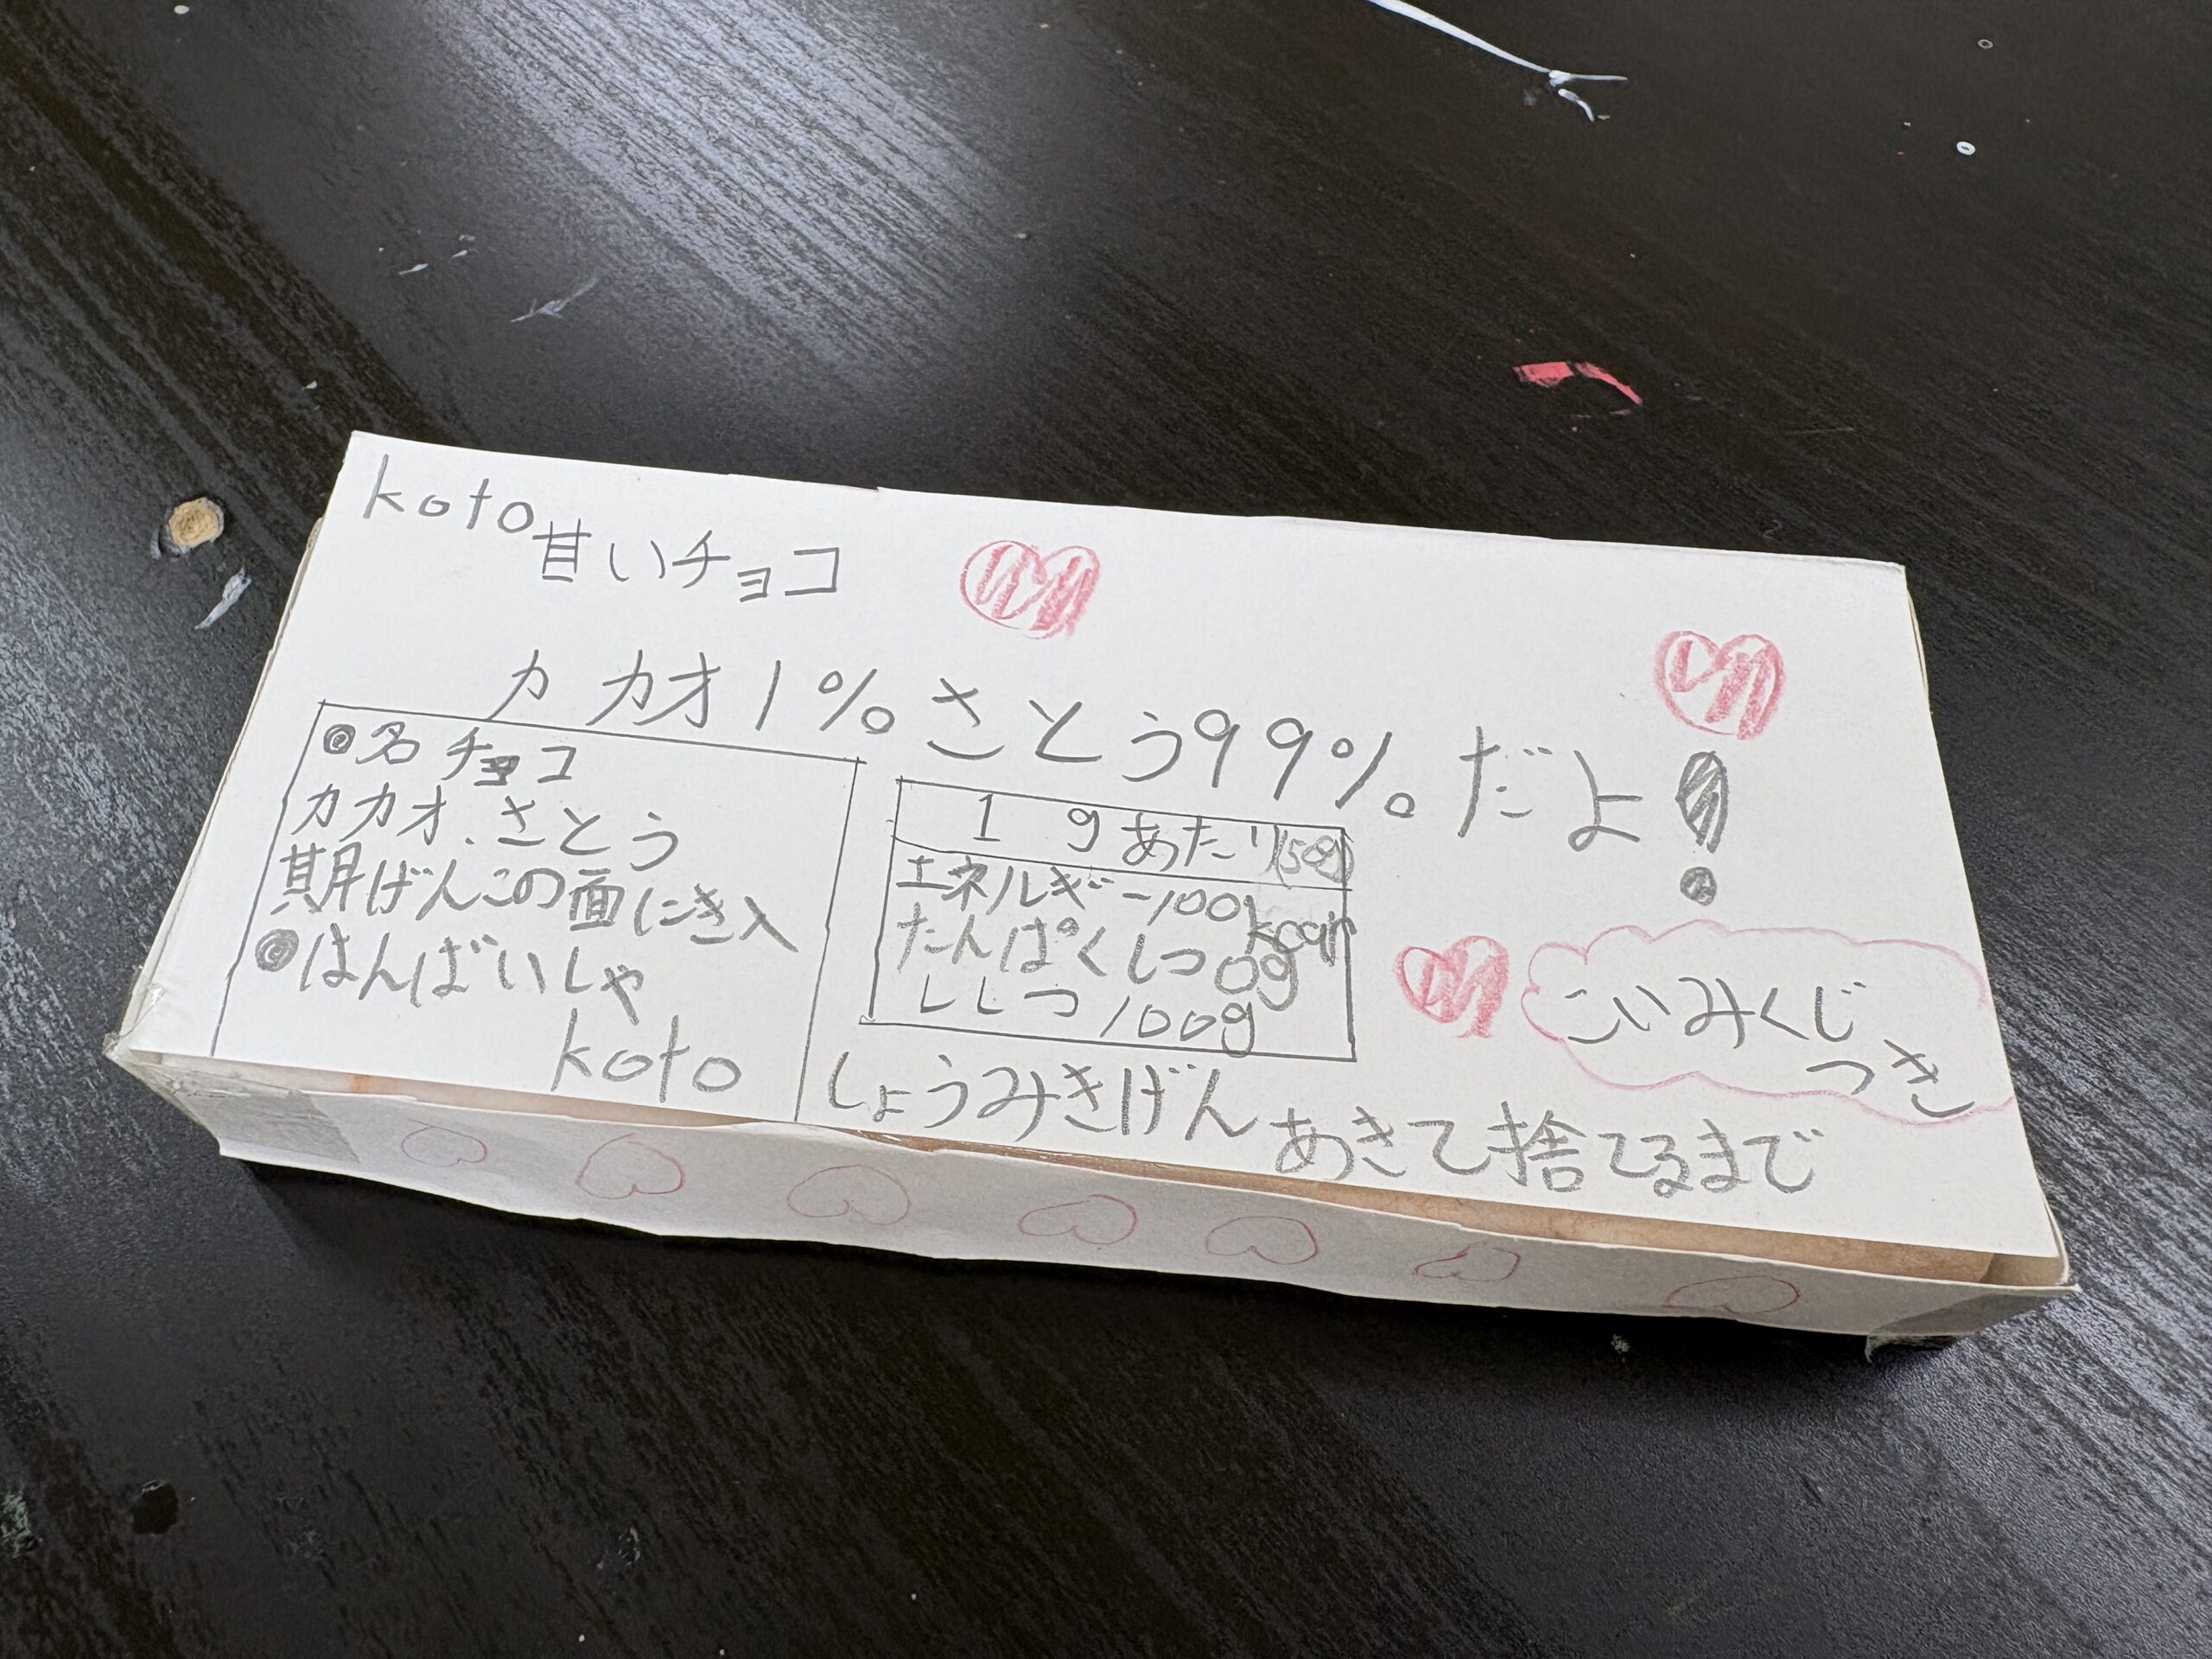 koto
甘いチョコ
カカオ1%さとう99%だよ!
◎名 チョコ
カカオ、さとう
期げんこの面にき入
◎はんばいしゃ
koto
1 gあたり
エネルギー100kcal
たんぱくしつ0g
ししつ100g
こいみくじ
つき
しょうみきげん
あきて捨てるまで